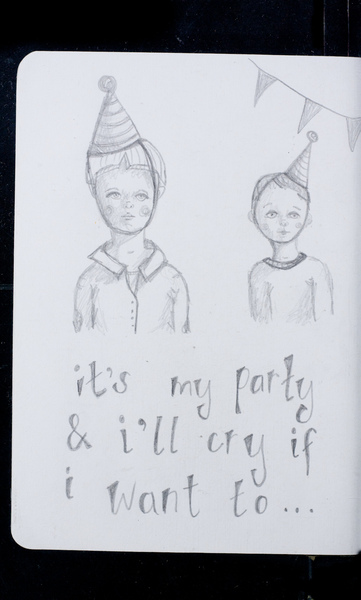 it's my party
& i'll cry if
i want to...